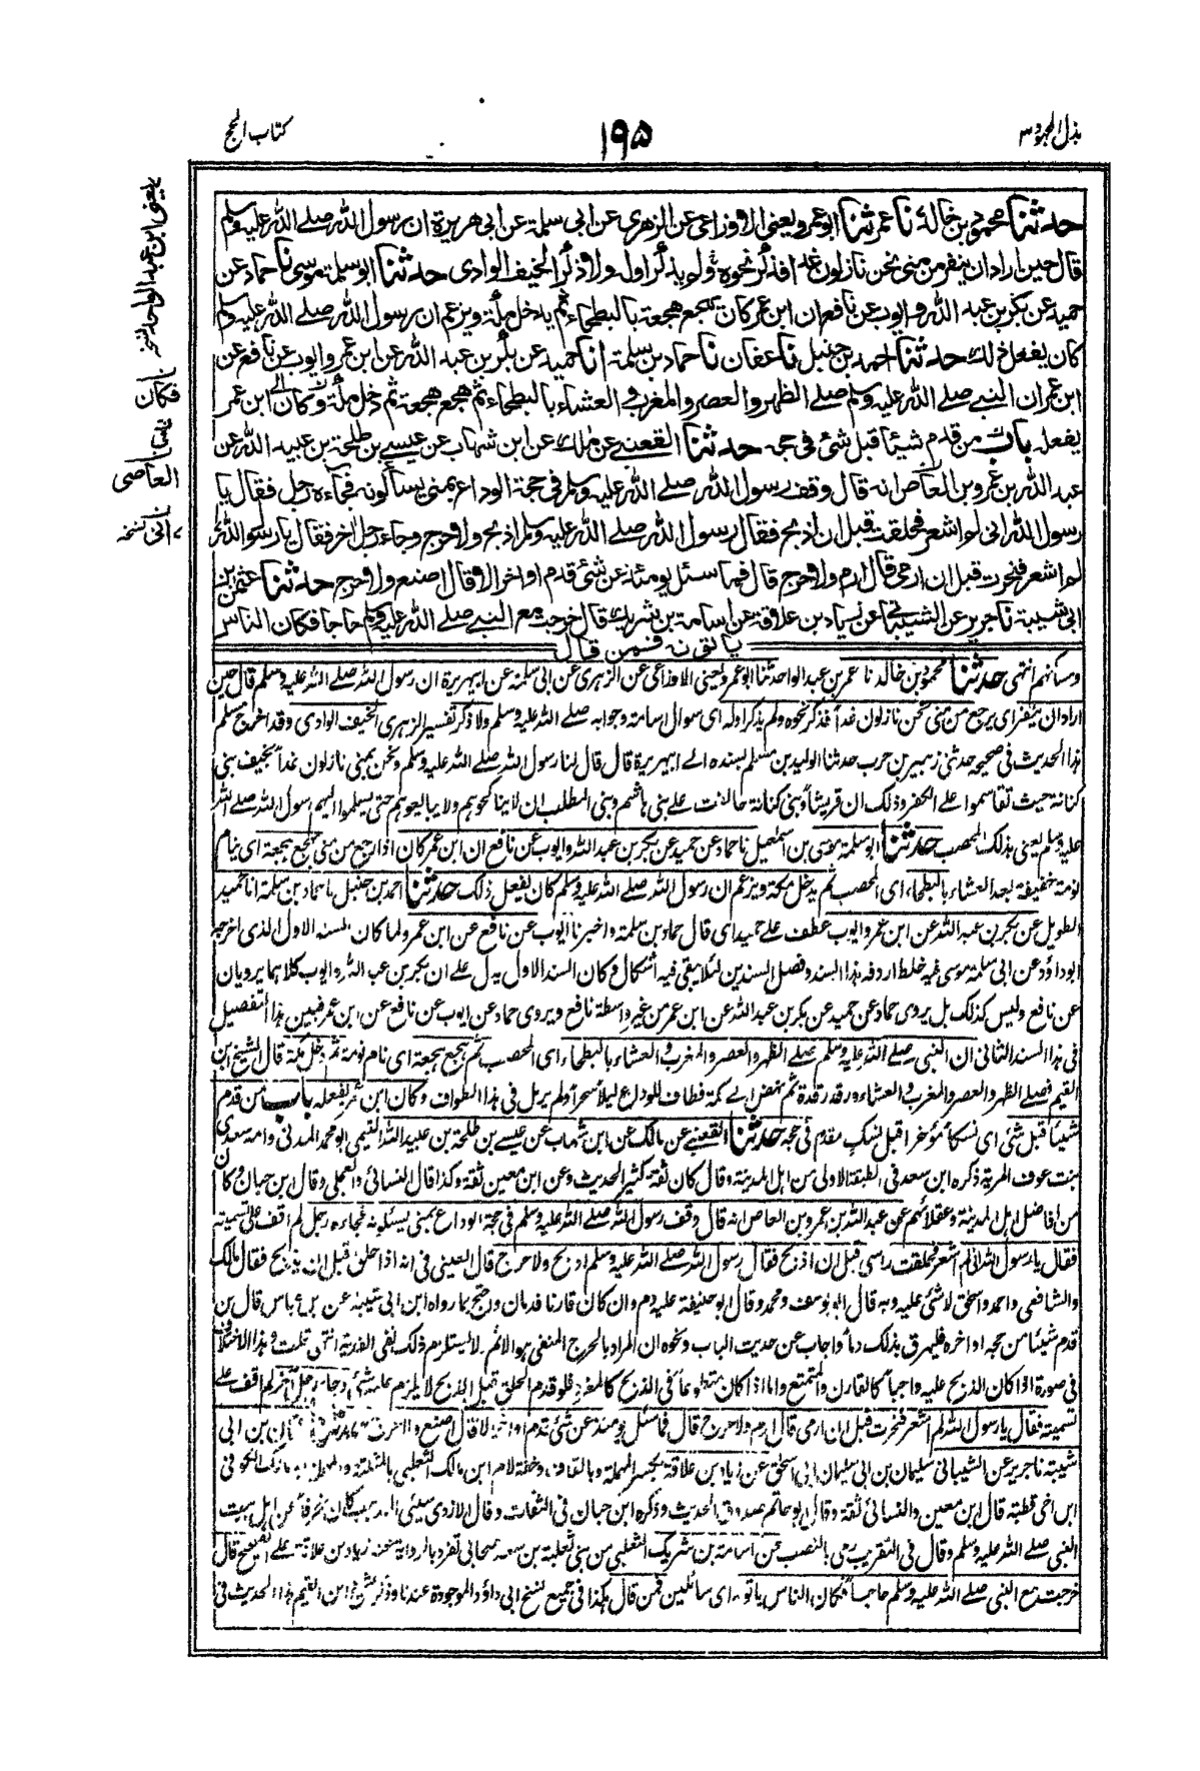 بذل المجهود ٣
١٩٥
كتاب الحج
حدثنا محمود بن خالد نا عمر ثنا ابو عمرو يعني الاوزاعي عن الزهري عن ابي سلمة عن ابي هريرة ان رسول الله صلى الله عليه وسلم
قال حين اراد ان ينفر من منى نحن نازلون غدا فذكر نحوه ولم يذكر اوله ولا ذكر الخيف الوادي حدثنا ابو سلمة موسى نا حماد عن
حميد عن بكر بن عبد الله وايوب عن نافع ان ابن عمر كان يهجع هجعة بالبطحاء ثم يدخل مكة ويزعم ان رسول الله صلى الله عليه وسلم
كان يفعل ذلك حدثنا احمد بن حنبل نا عفان نا حماد بن سلمة انا حميد عن بكر بن عبد الله عن ابن عمر وايوب عن نافع عن
ابن عمر ان النبي صلى الله عليه وسلم صلى الظهر والعصر والمغرب والعشاء بالبطحاء ثم هجع هجعة ثم دخل مكة وكان ابن عمر
يفعله باب من قدم شيئا قبل شئ في حجه حدثنا القعنبي عن مالك عن ابن شهاب عن عيسى بن طلحة بن عبيد الله عن
عبد الله بن عمرو بن العاص انه قال وقف رسول الله صلى الله عليه وسلم في حجة الوداع بمنى يسألونه فجاءه رجل فقال يا
رسول الله اني لم اشعر فحلقت قبل ان اذبح فقال رسول الله صلى الله عليه وسلم اذبح ولا حرج وجاء رجل آخر فقال يا رسول الله
لم اشعر فنحرت قبل ان ارمي قال ارم ولا حرج قال فما سئل يومئذ عن شئ قدم او اخر الا قال اصنع ولا حرج حدثنا عثمن بن
ابي شيبة نا جرير عن الشيباني عن زياد بن علاقة عن اسامة بن شريك قال خرجت مع النبي صلى الله عليه وسلم حاجا فكان الناس
ياتونه فمن قال
يعني ابن عبد الواحد نسخه
فكان
العاصي
اني نسخه
وسكانهم انتهى حدثنا محمود بن خالد نا عمر بن عبد الواحد ثنا ابو عمرو يعني الاوزاعي عن الزهري عن ابي سلمة عن ابي هريرة ان رسول الله صلى الله عليه وسلم قال حين
اراد ان ينفر اى يرجع من منى نحن نازلون غدا فذكر نحوه ولم يذكر اوله اى سوال اسامة وجوابه صلى الله عليه وسلم ولا ذكر تفسير الزهري الخيف الوادي وقد اخرج مسلم
هذا الحديث في صحيحه حدثني زهير بن حرب حدثنا الوليد بن مسلم بسنده الى ابي هريرة قال قال لنا رسول الله صلى الله عليه وسلم ونحن بمنى نازلون غدا بخيف بني
كنانة حيث تقاسموا على الكفر وذلك ان قريشا وبني كنانة حالفت على بني هاشم وبني المطلب ان لا يناكحوهم ولا يبايعوهم حتى يسلموا اليهم رسول الله صلى الله
عليه وسلم يعني بذلك المحصب حدثنا ابو سلمة موسى بن اسمعيل نا حماد عن حميد عن بكر بن عبد الله وايوب عن نافع ان ابن عمر كان اذا رجع من منى يهجع هجعة اى ينام
نومة خفيفة بعد العشاء بالبطحاء اى المحصب ثم يدخل مكة ويزعم ان رسول الله صلى الله عليه وسلم كان يفعل ذلك حدثنا احمد بن حنبل نا حماد بن سلمة انا حميد
الطويل عن بكر بن عبد الله عن ابن عمر وايوب عطف على حميد اى قال حماد بن سلمة واخبرنا ايوب عن نافع عن ابن عمر ولما كان السند الاول الذي اخرجه
ابو داؤد عن ابي سلمة موسى فيه خلط اردفه بهذا السند وفصل السندين لئلا يبقى فيه اشكال فكان السند الاول يدل على ان بكر بن عبد الله وايوب كلاهما يرويان
عن نافع وليس كذلك بل يروي حماد عن حميد عن بكر بن عبد الله عن ابن عمر من غير واسطة نافع ويروي حماد عن ايوب عن نافع عن ابن عمر فبين هذا التفصيل
في هذا السند الثاني ان النبي صلى الله عليه وسلم صلى الظهر والعصر والمغرب والعشاء بالبطحاء اى المحصب ثم هجع بهجعة اى نام نومة ثم دخل مكة قال الشيخ ابن
القيم فصلى الظهر والعصر والمغرب والعشاء ورقد رقدة ثم نهض الى مكة فطاف للوداع ليلا سحرا ولم يرمل في هذا الطواف وكان ابن عمر يفعله باب من قدم
شيئا قبل شئ اى نسكا مؤخرا قبل نسك مقدم في حجه حدثنا القعنبي عن مالك عن ابن شهاب عن عيسى بن طلحة بن عبيد الله التيمي ابو محمد المدني وامه سعدى
بنت عوف المرية ذكره ابن سعد في الطبقة الاولى من اهل المدينة وقال كان ثقة كثير الحديث وعن ابن معين ثقة وكذا قال النسائي والعجلي وقال ابن حبان كان
من افاضل اهل المدينة وعقلائهم عن عبد الله بن عمرو بن العاص انه قال وقف رسول الله صلى الله عليه وسلم في حجة الوداع بمنى يسئلونه فجاءه رجل لم اقف على تسميته
فقال يا رسول الله اني لم اشعر فحلقت راسي قبل ان اذبح فقال رسول الله صلى الله عليه وسلم اذبح ولا حرج قال العيني في انه اذا حلق قبل ان يذبح فقال مالك
والشافعي واحمد واسحق لا شئ عليه وبه قال ابو يوسف ومحمد وقال ابو حنيفة عليه دم وان كان قارنا فدمان واحتج بما رواه ابن ابي شيبة عن ابن عباس قال من
قدم شيئا من حجه او اخره فليهرق بذلك دما واجاب عن حديث الباب ونحوه ان المراد بالحرج المنفي هو الاثم لا يستلزم ذلك نفي الفدية انتهى قلت وهذا الاختلاف
في صورة اذا كان الذبح عليه واجبا كالقارن والمتمتع واما اذا كان متطوعا في الذبح كالمفرد فلو قدم الحلق قبل الذبح لا يلزم عليه شئ وجاء رجل آخر لم اقف على
تسميته فقال يا رسول الله لم اشعر فنحرت قبل ان ارمي قال ارم ولا حرج قال فما سئل يومئذ عن شئ قدم او اخر الا قال اصنع ولا حرج حدثنا عثمان بن ابي
شيبة نا جرير عن الشيباني سليمان بن ابي سليمان ابي اسحق عن زياد بن علاقة بكسر المهملة وبالقاف ابن مالك الثعلبي بالمثلثة والمهملة ابو مالك الكوفي
ابن اخي قطبة قال ابن معين والنسائي ثقة وقال ابو حاتم صدوق الحديث وذكره ابن حبان في الثقات وقال الازدي سيئ المذهب كان منحرفا عن اهل بيت
النبي صلى الله عليه وسلم وقال في التقريب رمي بالنصب عن اسامة بن شريك الثعلبي من بني ثعلبة بن سعد صحابي تفرد بالرواية عنه زياد بن علاقة على الصحيح قال
خرجت مع النبي صلى الله عليه وسلم حاجا فكان الناس ياتونه اى سائلين فمن قال هكذا في جميع نسخ ابي داؤد الموجودة عندنا وذكر الشيخ ابن القيم هذا الحديث في